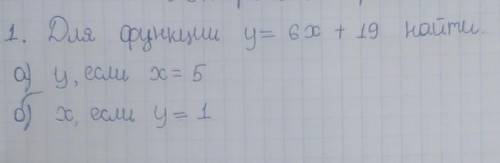 1. Для функции y = 6x + 19 найти
а) y, если x = 5
б) x, если y = 1